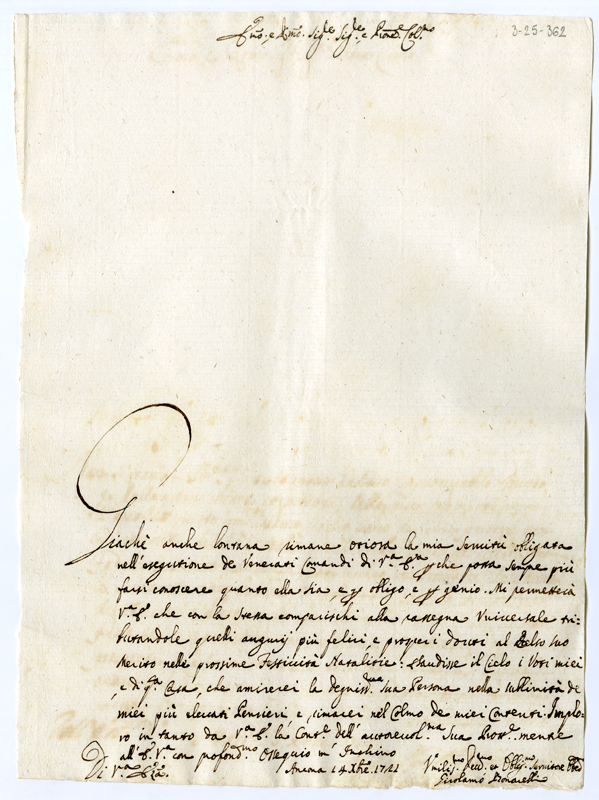 Emo, e Rmo. Sigre. Sigre, e Prone. Colmo
3-25-362
Giachè anche lontana rimane oziosa la mia Servitù obligata
nell'esegutione de Venerati Comandi di Va. Ema. che possa sempre più
farsi conoscere quanto ella sia e obligo, e genio. Mi permetterà
Va. E. che con la stessa comparischi alla rassegna Universale tri-
butandole quelli augurij più felici e prosperi dovuti al Eccelso suo
Merito nelle prossime Festività Natalitie: Esaudisse il Cielo i Voti miei
e di qta. Casa, che amirerei la degnissma. sua Persona nella sublimità de
miei più elevati Pensieri e rimarei nel Colmo de miei Contenti. Implo-
ro in tanto da Va. E. la Conte. dell' autorevolma Sua Prote. mentre
all'E. Va. con profondmo Ossequio m' Inchino
Di Va. Ema.
Ancona 14 Xbre. 1721
Umilmo Devmo et Obligmo Servitore
Girolamo Bonarelli